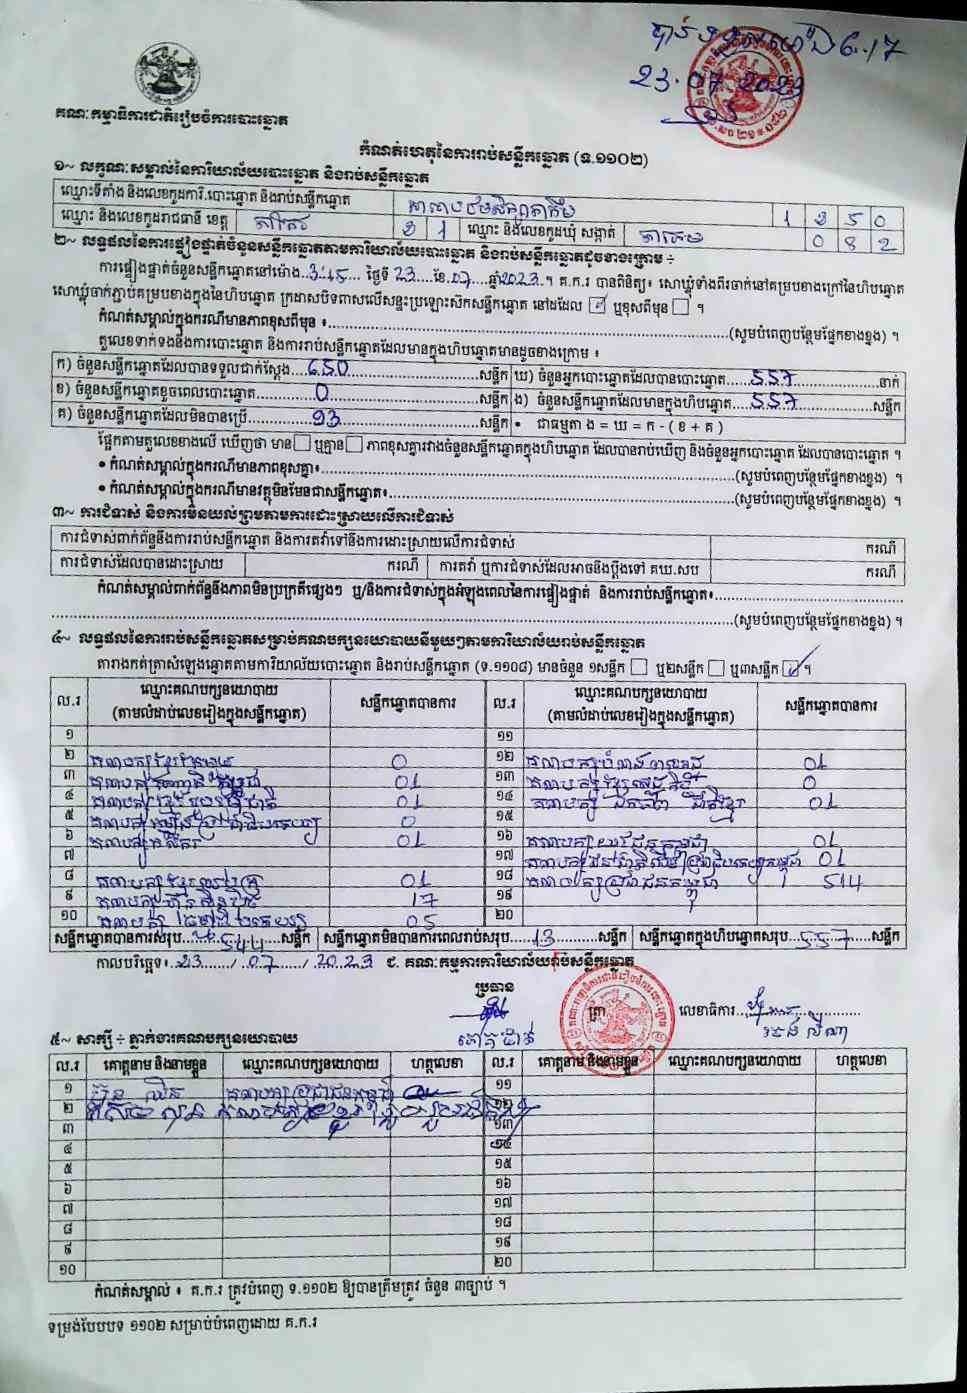 6.17
23.07.2023
គណៈកម្មាធិការជាតិរៀបចំការបោះឆ្នោត
កំណត់ហេតុនៃការរាប់សន្លឹកឆ្នោត (ទ.១១០២)
១~ លក្ខណៈសម្គាល់នៃការិយាល័យបោះឆ្នោត និងរាប់សន្លឹកឆ្នោត
ឈ្មោះទីតាំង និងលេខកូដការិ.បោះឆ្នោត និងរាប់សន្លឹកឆ្នោត 1 3 5 0
ឈ្មោះ និងលេខកូដរាជធានី ខេត្ត 2 1 ឈ្មោះ និងលេខកូដឃុំ សង្កាត់ 0 8 2
២~ លទ្ធផលនៃការផ្ទៀងផ្ទាត់ចំនួនសន្លឹកឆ្នោតតាមការិយាល័យបោះឆ្នោត និងរាប់សន្លឹកឆ្នោតដូចខាងក្រោម ÷
ការផ្ទៀងផ្ទាត់ចំនួនសន្លឹកឆ្នោតនៅម៉ោង..3:15.... ថ្ងៃទី 23.....ខែ.07....ឆ្នាំ2023..។ គ.ក.រ បានពិនិត្យ៖ សោឃ្លុំទាំងពីរចាក់នៅគម្របខាងក្រៅនៃហិបឆ្នោត
សោឃ្លុំចាក់ភ្ជាប់គម្របខាងក្នុងនៃហិបឆ្នោត ក្រដាសបិទពាសលើសន្ទះប្រឡោះសិកសន្លឹកឆ្នោត នៅដដែល ☑ ឬខុសពីមុន ☐ ។
កំណត់សម្គាល់ក្នុងករណីមានភាពខុសពីមុន ៖.....(សូមបំពេញបន្ថែមផ្នែកខាងខ្នង) ។
តួលេខទាក់ទងនឹងការបោះឆ្នោត និងការរាប់សន្លឹកឆ្នោតដែលមានក្នុងហិបឆ្នោតមានដូចខាងក្រោម ៖
ក) ចំនួនសន្លឹកឆ្នោតដែលបានទទួលជាក់ស្តែង....650.....សន្លឹក ឃ) ចំនួនអ្នកបោះឆ្នោតដែលបានបោះឆ្នោត.....557.....នាក់
ខ) ចំនួនសន្លឹកឆ្នោតខូចពេលបោះឆ្នោត.....0.....សន្លឹក ង) ចំនួនសន្លឹកឆ្នោតដែលមានក្នុងហិបឆ្នោត.....557.....សន្លឹក
គ) ចំនួនសន្លឹកឆ្នោតដែលមិនបានប្រើ.....93.....សន្លឹក • ជាធម្មតា ង = ឃ = ក - ( ខ + គ )
ផ្អែកតាមតួលេខខាងលើ ឃើញថា មាន ☐ ឬគ្មាន ☐ ភាពខុសគ្នារវាងចំនួនសន្លឹកឆ្នោតក្នុងហិបឆ្នោត ដែលបានរាប់ឃើញ និងចំនួនអ្នកបោះឆ្នោត ដែលបានបោះឆ្នោត ។
• កំណត់សម្គាល់ក្នុងករណីមានភាពខុសគ្នា៖.....(សូមបំពេញបន្ថែមផ្នែកខាងខ្នង) ។
• កំណត់សម្គាល់ក្នុងករណីមានវត្ថុមិនមែនជាសន្លឹកឆ្នោត៖.....(សូមបំពេញបន្ថែមផ្នែកខាងខ្នង) ។
៣~ ការជំទាស់ និងការមិនយល់ព្រមតាមការដោះស្រាយលើការជំទាស់
ការជំទាស់ពាក់ព័ន្ធនឹងការរាប់សន្លឹកឆ្នោត និងការតវ៉ាទៅនឹងការដោះស្រាយលើការជំទាស់ ករណី
ការជំទាស់ដែលបានដោះស្រាយ ករណី ការតវ៉ា ឬការជំទាស់ដែលអាចនឹងប្តឹងទៅ គឃ.សប ករណី
កំណត់សម្គាល់ពាក់ព័ន្ធនឹងភាពមិនប្រក្រតីផ្សេងៗ ឬ/និងការជំទាស់ក្នុងអំឡុងពេលនៃការផ្ទៀងផ្ទាត់ និងការរាប់សន្លឹកឆ្នោត៖.....
.....(សូមបំពេញបន្ថែមផ្នែកខាងខ្នង) ។
៤~ លទ្ធផលនៃការរាប់សន្លឹកឆ្នោតសម្រាប់គណបក្សនយោបាយនីមួយៗតាមការិយាល័យរាប់សន្លឹកឆ្នោត
តារាងកត់ត្រាសំឡេងឆ្នោតតាមការិយាល័យបោះឆ្នោត និងរាប់សន្លឹកឆ្នោត (ទ.១១០៨) មានចំនួន ១សន្លឹក ☐ ឬ២សន្លឹក ☐ ឬ៣សន្លឹក ☑ ។
ល.រ ឈ្មោះគណបក្សនយោបាយ (តាមលំដាប់លេខរៀងក្នុងសន្លឹកឆ្នោត) សន្លឹកឆ្នោតបានការ ល.រ ឈ្មោះគណបក្សនយោបាយ (តាមលំដាប់លេខរៀងក្នុងសន្លឹកឆ្នោត) សន្លឹកឆ្នោតបានការ
១ ១១
២ គណបក្ស 0 ១២ គណបក្ស 01
៣ គណបក្ស 01 ១៣ គណបក្ស 0
៤ គណបក្ស 01 ១៤ គណបក្ស 01
៥ គណបក្ស 0 ១៥
៦ គណបក្ស 01 ១៦ គណបក្ស 01
៧ ១៧ គណបក្ស 01
៨ គណបក្ស 01 ១៨ គណបក្សប្រជាជនកម្ពុជា 514
៩ គណបក្ស 17 ១៩
១០ គណបក្ស 05 ២០
សន្លឹកឆ្នោតបានការសរុប.....544.....សន្លឹក សន្លឹកឆ្នោតមិនបានការពេលរាប់សរុប.....13.....សន្លឹក សន្លឹកឆ្នោតក្នុងហិបឆ្នោតសរុប...557....សន្លឹក
កាលបរិច្ឆេទ៖..23....../..07....../..2023 ជ. គណៈកម្មការការិយាល័យរាប់សន្លឹកឆ្នោត
ប្រធាន
ត្រា លេខាធិការ.....
៥~ សាក្សី ÷ ភ្នាក់ងារគណបក្សនយោបាយ
ល.រ គោត្តនាម និងនាមខ្លួន ឈ្មោះគណបក្សនយោបាយ ហត្ថលេខា ល.រ គោត្តនាម និងនាមខ្លួន ឈ្មោះគណបក្សនយោបាយ ហត្ថលេខា
១ គណបក្សប្រជាជនកម្ពុជា ១១
២ គណបក្ស ១២
៣ ១៣
៤ ១៤
៥ ១៥
៦ ១៦
៧ ១៧
៨ ១៨
៩ ១៩
១០ ២០
កំណត់សម្គាល់ ៖ គ.ក.រ ត្រូវបំពេញ ទ.១១០២ ឱ្យបានត្រឹមត្រូវ ចំនួន ៣ច្បាប់ ។
ទម្រង់បែបបទ ១១០២ សម្រាប់បំពេញដោយ គ.ក.រ